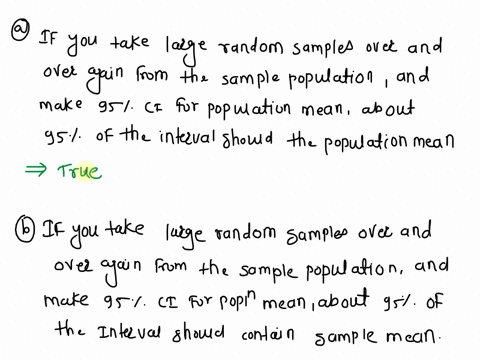 (a) IF you take large random samples over and
over again from the sample population, and
make 95% CI for population mean, about
95% of the interval should the population mean
⇒ True
(b) IF you take large random samples over and
over again from the sample population, and
make 95% CI for popⁿ mean, about 95% of
the Interval should contain sample mean.